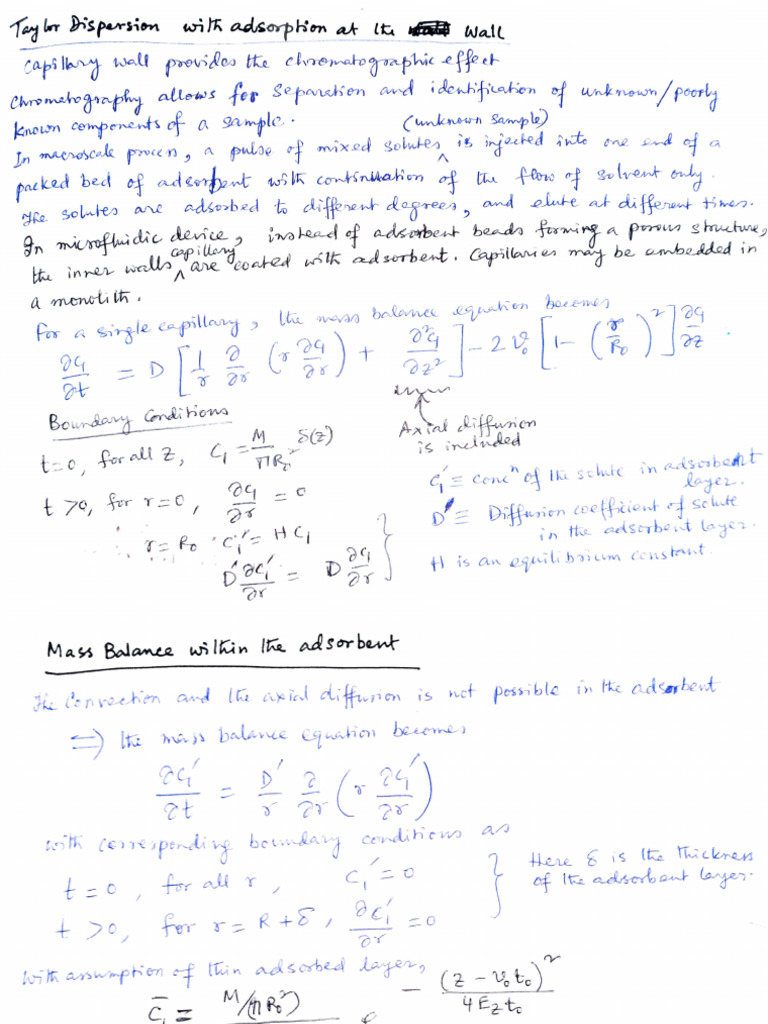 Taylor Dispersion with adsorption at the Wall
Capillary wall provides the chromatographic effect
Chromatography allows for separation and identification of unknown/poorly
known components of a sample. (unknown sample)
In macroscale process, a pulse of mixed solutes ^ is injected into one end of a
packed bed of adsorbent with continuation of the flow of solvent only.
The solutes are adsorbed to different degrees, and elute at different times.
In microfluidic device, instead of adsorbent beads forming a porous structure,
the inner walls ^ capillary are coated with adsorbent. Capillaries may be embedded in
a monolith.
For a single capillary, the mass balance equation becomes
∂C₁/∂t = D [ 1/r ∂/∂r (r ∂C₁/∂r) + ∂²C₁/∂z² ] - 2v₀ [ 1 - (r/R₀)² ] ∂C₁/∂z
Boundary Conditions
Axial diffusion
is included
t=0, for all z, C₁ = M/(πR₀²) δ(z)
t>0, for r=0, ∂C₁/∂r = 0
r=R₀ C₁' = H C₁
D' ∂C₁'/∂r = D ∂C₁/∂r
C₁' ≡ concⁿ of the solute in adsorbent
layer.
D' ≡ Diffusion coefficient of solute
in the adsorbent layer.
H is an equilibrium constant.
Mass Balance within the adsorbent
The convection and the axial diffusion is not possible in the adsorbent
⇒ the mass balance equation becomes
∂C₁'/∂t = D'/r ∂/∂r (r ∂C₁'/∂r)
with corresponding boundary conditions as
t=0, for all r, C₁' = 0
t>0, for r = R+δ, ∂C₁'/∂r = 0
Here δ is the thickness
of the adsorbent layer.
With assumption of thin adsorbed layer,
C̄₁ = M/(πR₀²) e - (z - v₀t₀)²/4E_z t₀